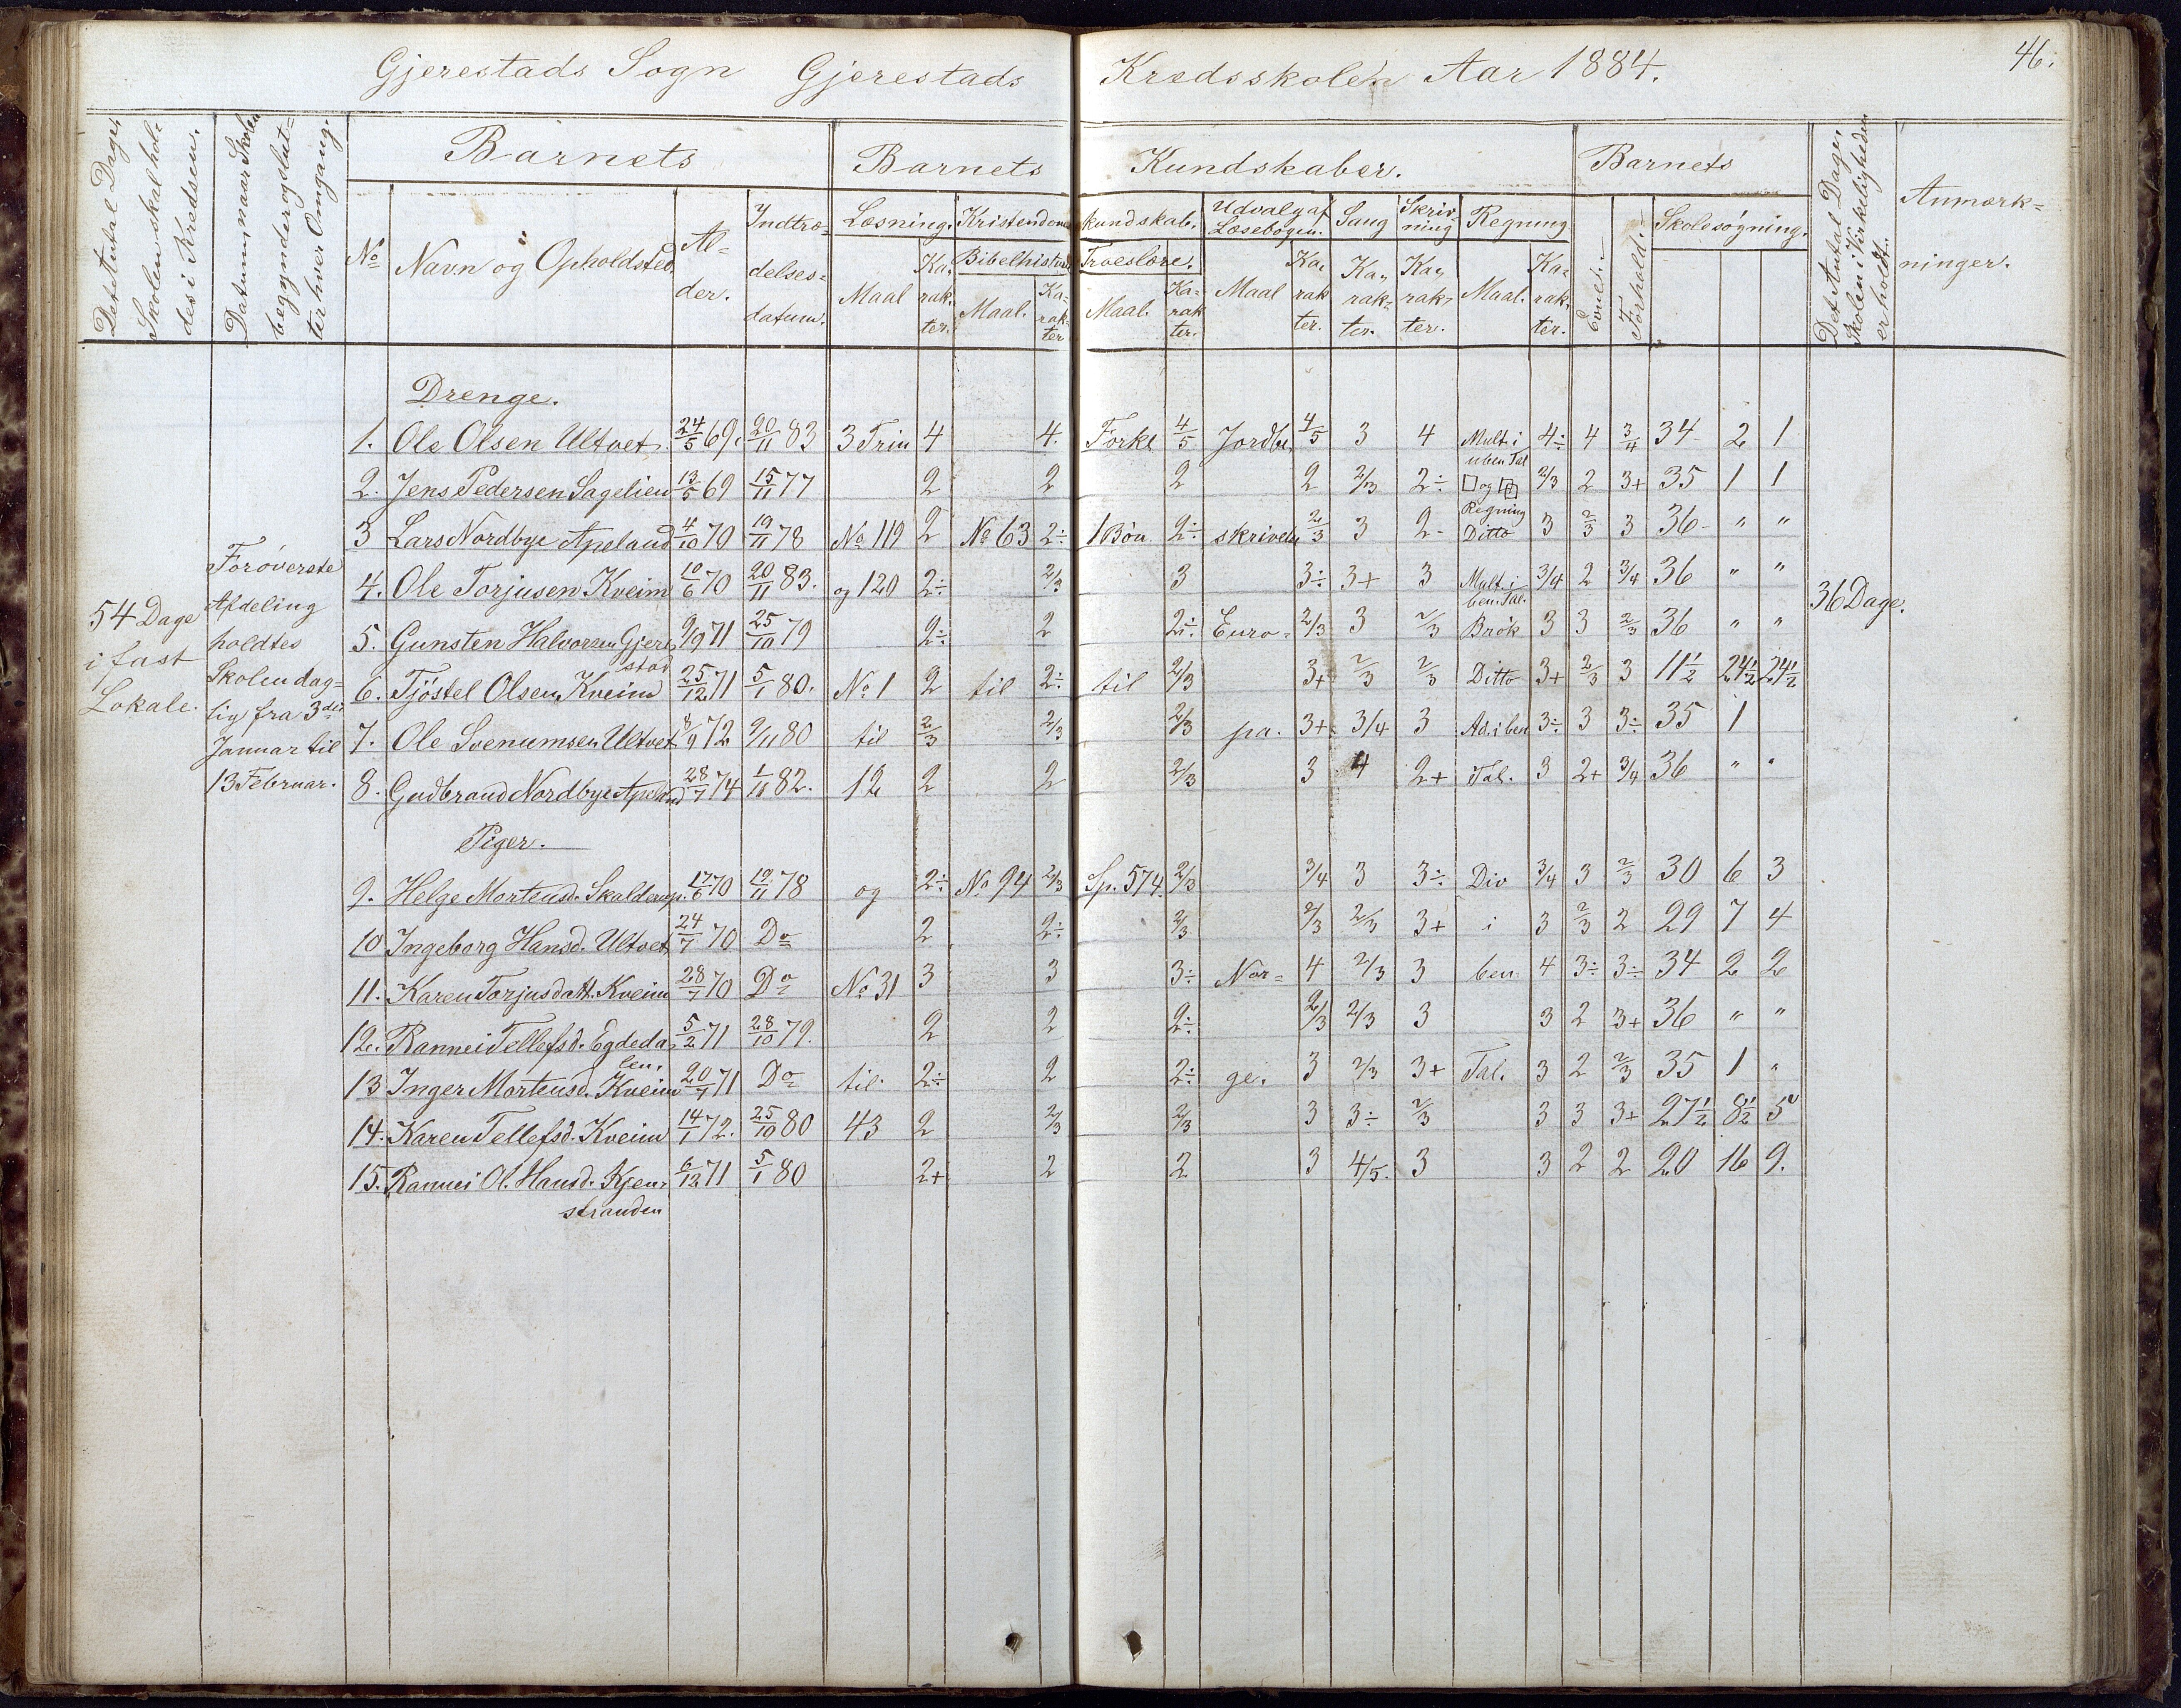 Gjerestads Sogn Gjerestads Kredsskolen Aar 1884. 46.
Det Antal Dage, Skolen skal holdes i Kredsen.
Datum, naar Skolen begynder og slutter hver Omgang.
Barnets Barnets Kundskaber. Barnets
Det Antal Dage, Skolen i Virkeligheden er holdt.
Anmærkninger.
No Navn og Opholdsted. Alder. Indtrædelsesdatum.
Læsning. Kristendomskundskab. Udvalg af Læsebogen. Sang Skrivning Regning
Bibelhistorie Troeslære.
Maal Karakter. Maal. Karakter Maal. Karakter. Maal Karakter. Karakter. Karakter. Maal. Karakter.
Evne. Forhold. Skolesøgning.
Drenge.
1. Ole Olsen Ultvet 24/5 69. 20/11 83 3 Trin 4 4. Forkl 4/5 Jordbe 4/5 3 4 Mult. i uben Tal 4÷ 4 3/4 34 2 1
2. Jens Pedersen Sagelien 13/5 69 15/11 77 2 2 2 2 2/3 2÷ □ og Regning 2/3 2 3+ 35 1 1
3 Lars Nordbye Apeland 4/10 70 19/11 78 No 119 2 No 63 2÷ 1 Bøn 2÷ skrivelse 2/3 3 2- Ditto 3 2/3 3 36 " "
4. Ole Torjusen Kveim 10/6 70 20/11 83. og 120 2÷ 2/3 3 3÷ 3+ 3 Mult. i ben. Tal. 3/4 2 3/4 36 " "
5. Gunsten Halvorsen Gjerestad 9/9 71 25/10 79 2÷ 2 2÷ Euro= 2/3 3 2/3 Brøk 3 3 2/3 36 " "
6. Tjöstel Olsen Kveim 25/12 71 5/1 80. No 1 2 til 2÷ til 2/3 3+ 2/3 2/3 Ditto 3+ 2/3 3 11½ 24½ 24½
7. Ole Svenumsen Ultvet 8/9 72 9/11 80 til 2/3 2/3 2/3 pa. 3+ 3/4 3 Ad. i ben 3÷ 3 3÷ 35 1
8. Gudbrand Nordbye Apeland 28/7 74 1/11 82. 12 2 2 2/3 3 4 2+ Tal. 3 2+ 3/4 36 " "
Piger.
9. Helge Mortensd. Skalderup. 17/6 70 19/11 78 og 2÷ No 94 2/3 Sp. 574. 2/3 3/4 3 3÷ Div 3/4 3 2/3 30 6 3
10 Ingeborg Hansd. Ultvet 24/7 70 Do 2 2÷ 2/3 2/3 2/3 3+ i 3 2/3 2 29 7 4
11. Karen Torjusdatt. Kveim 28/7 70 Do No 31 3 3 3÷ Nor= 4 2/3 3 ben 4 3÷ 3÷ 34 2 2
12. Rannei Tellefsd. Egdedalen. 5/2 71 28/10 79. 2 2 2÷ 2/3 2/3 3 3 2 3+ 36 " "
13 Inger Mortensd. Kveim 20/7 71 Do til 2÷ 2 2÷ ge. 3 2/3 3+ Tal. 3 2 2/3 35 1 "
14. Karen Tellefsd. Kveim 14/1 72. 25/10 80 43 2 2/3 2/3 3 3÷ 2/3 3 3 3+ 27½ 8½ 5
15. Rannei Ol. Hansd. Kjenstranden 6/12 71 5/1 80 2+ 2 2 3 4/5. 3 3 2 2 20 16 9.
54 Dage
i fast
Lokale.
For øverste
Afdeling
holdtes
Skolen dag=
lig fra 3die
Januar til
13 Februar.
36 Dage.